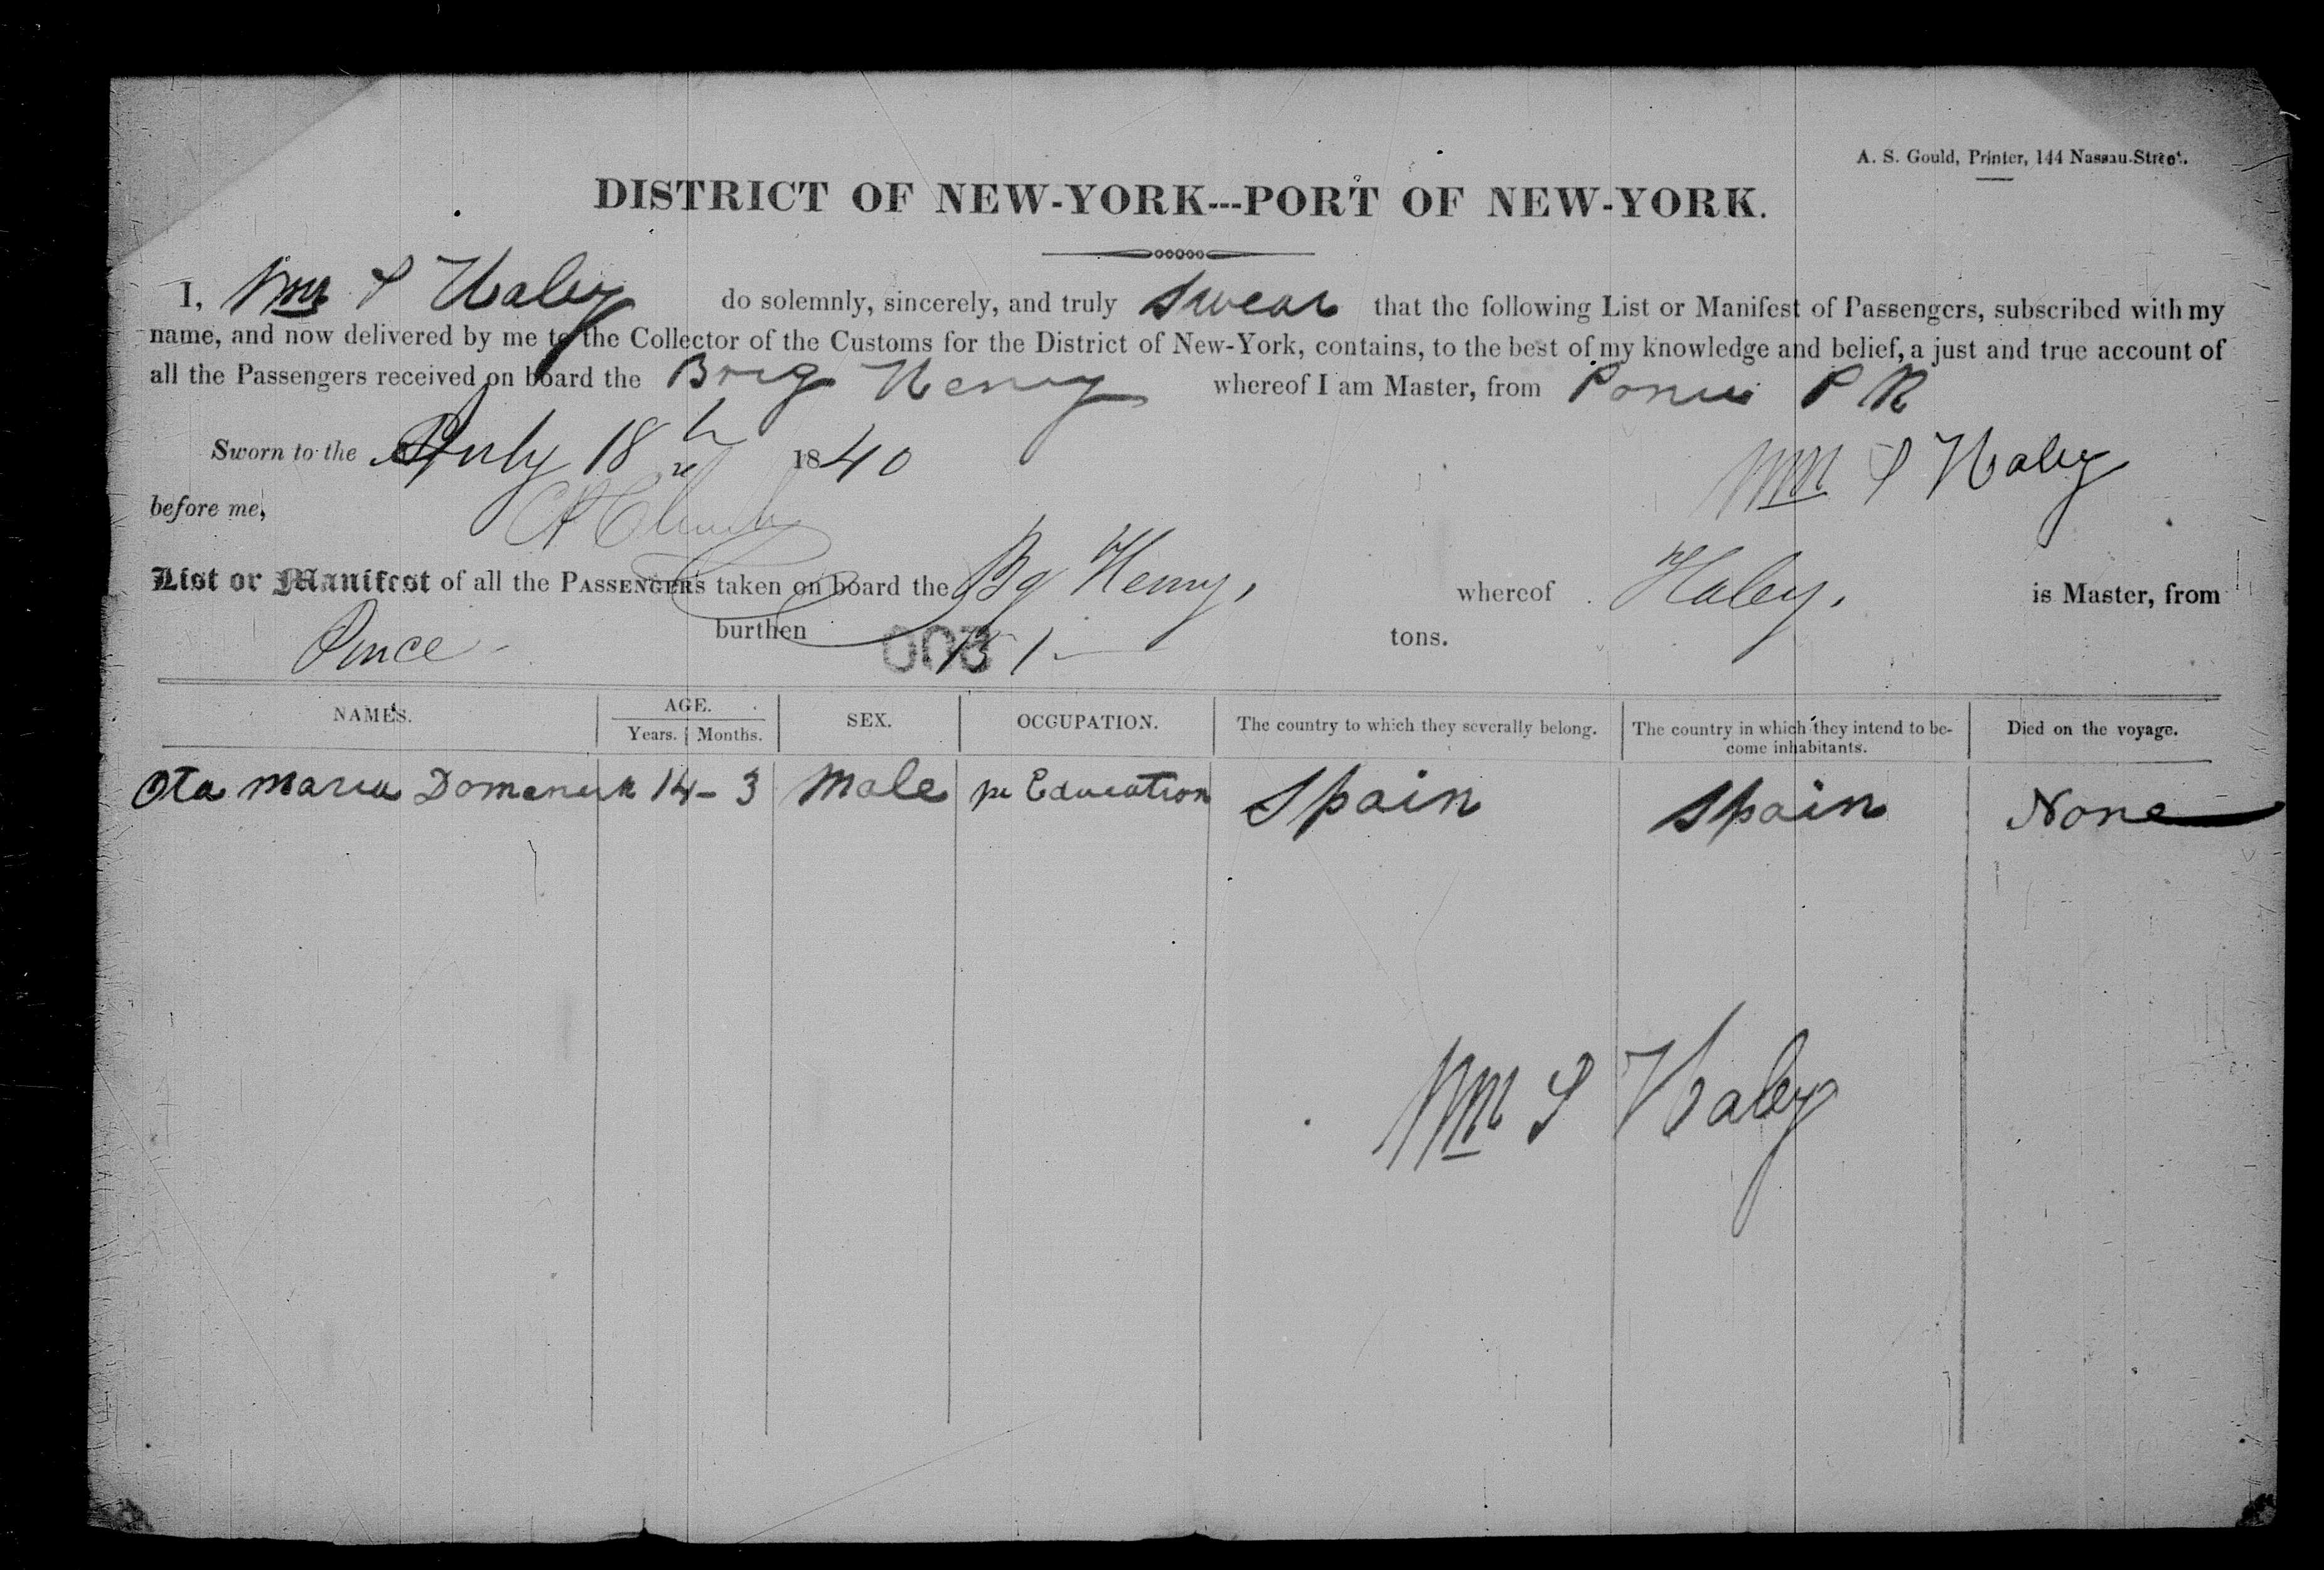 A. S. Gould, Printer, 144 Nassau-Street.
DISTRICT OF NEW-YORK---PORT OF NEW-YORK.
I, Wm S Haley do solemnly, sincerely, and truly swear that the following List or Manifest of Passengers, subscribed with my
name, and now delivered by me to the Collector of the Customs for the District of New-York, contains, to the best of my knowledge and belief, a just and true account of
all the Passengers received on board the Brig Henry whereof I am Master, from Ponce P R
Sworn to the July 18th 1840
Wm S Haley
before me,
List or Manifest of all the PASSENGERS taken on board the Bg Henry, whereof Haley, is Master, from
Ponce burthen 151 tons.
003
NAMES. AGE. SEX. OCCUPATION. The country to which they severally belong. The country in which they intend to be-
Years. Months. come inhabitants. Died on the voyage.
Maria 14 - 3 Male Education Spain Spain None
Wm S Haley